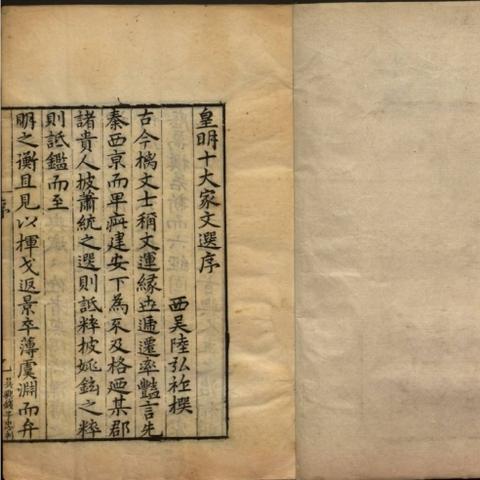 皇明十大家文選序
西吳陸弘祚撰
古今橋文士稱文運緣世遞遷率豔言先
秦西京而卑疵建安下為不及格廼某郡
諸貴人披蕭統之選則詆粹披姚鉉之粹
則詆鑑而至
明之衡且見以揮戈返景卒薄虞淵而弁
序